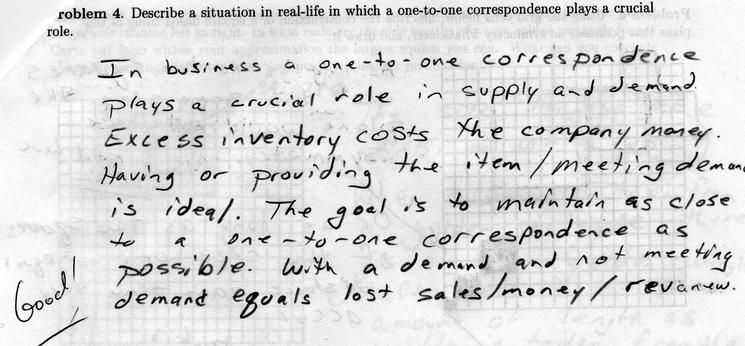 roblem 4. Describe a situation in real-life in which a one-to-one correspondence plays a crucial
role.
In business a one-to-one correspondence
plays a crucial role in supply and demand.
Excess inventory costs the company money.
Having or providing the item/meeting deman
is ideal. The goal is to maintain as close
to a one-to-one correspondence as
possible. With a demand and not meeting
demand equals lost sales/money/revanuw.
Good!